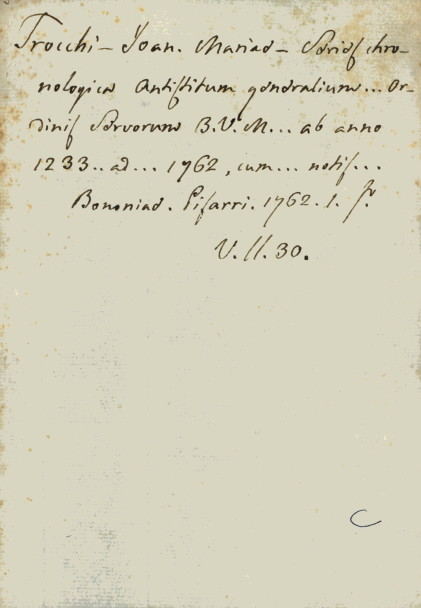 Trocchi - Joan. Mariae - Series chro-
nologica Antistitum generalium... Or-
dinis Servorum B.V.M... ab anno
1233.. ad... 1762, cum... notis...
Bononiae. Pisarri. 1762. 1. f.º
V. II. 30.
C